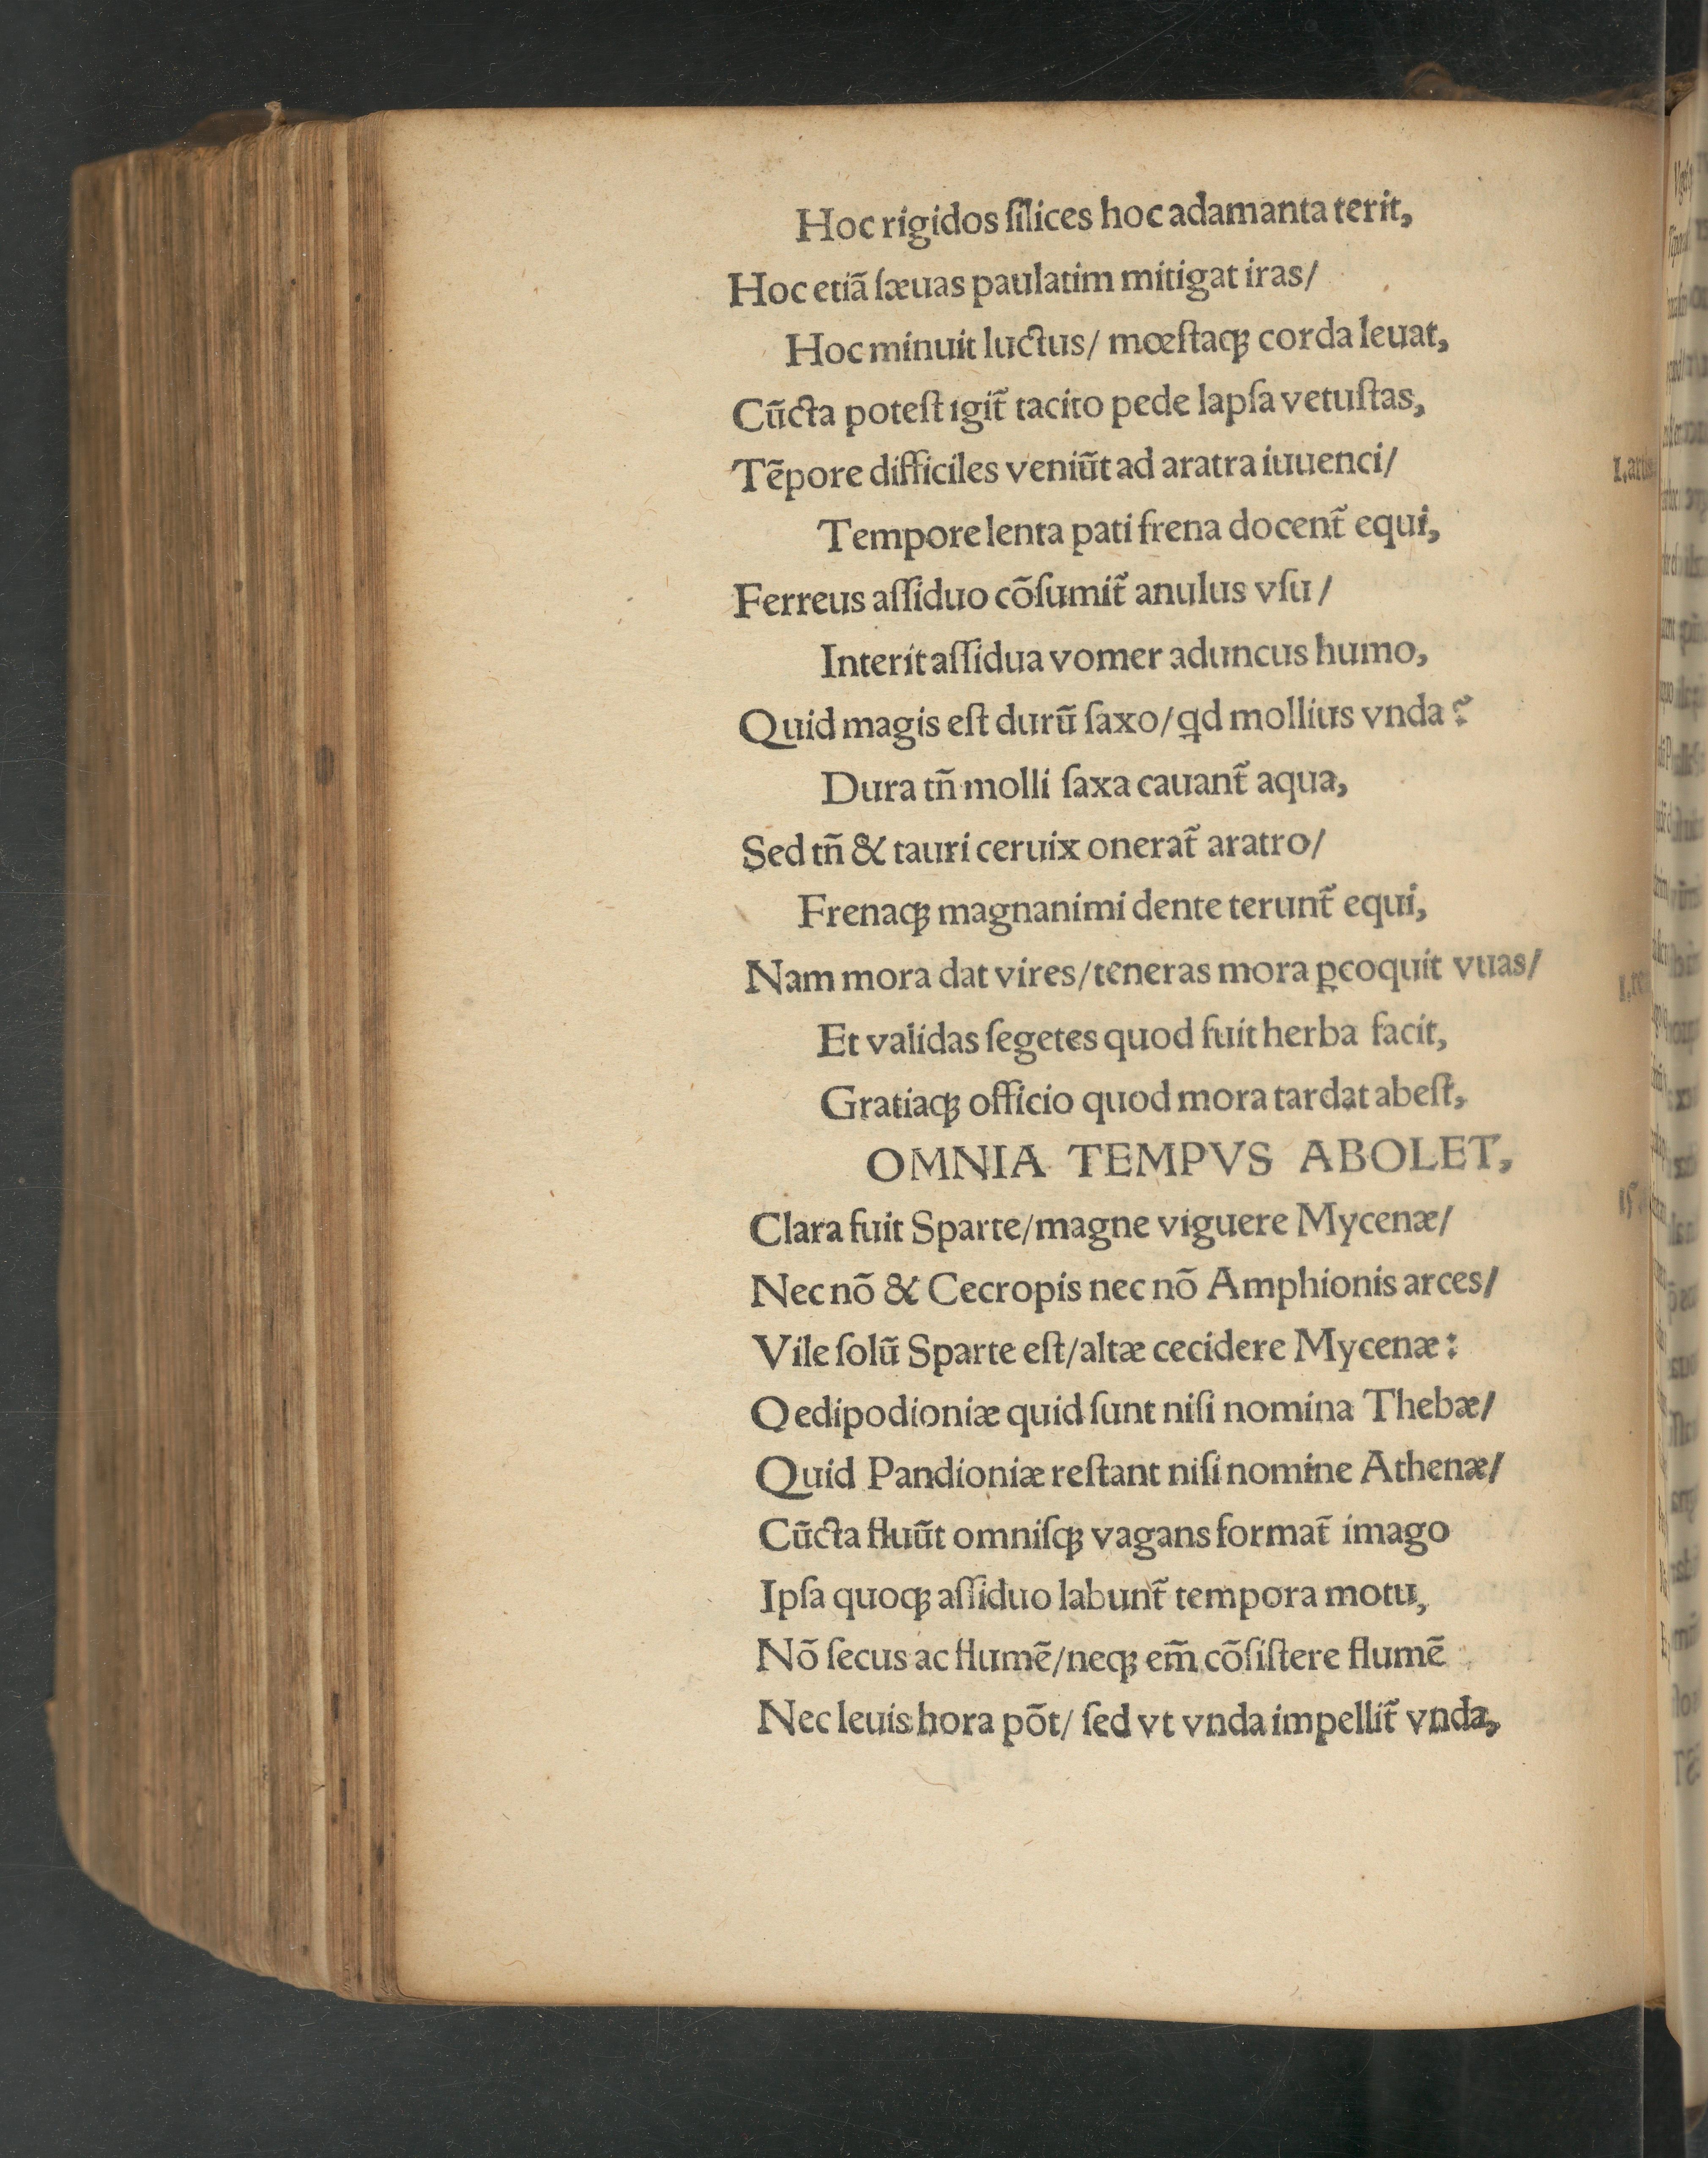 Hoc rigidos ſilices hoc adamanta terit,
Hoc etiã ſæuas paulatim mitigat iras/
Hoc minuit luctus/ mœſtaqꝫ corda leuat,
Cũcta poteſt igit̃ tacito pede lapſa vetuſtas,
Tẽpore difficiles veniũt ad aratra iuuenci/
Tempore lenta pati frena docent̃ equi,
Ferreus aſſiduo cõſumit̃ anulus vſu/
Interit aſſidua vomer aduncus humo,
Quid magis eſt durũ ſaxo/ ꝗd mollius vnda?
Dura tñ molli ſaxa cauant̃ aqua,
Sed tñ & tauri ceruix onerat̃ aratro/
Frenaqꝫ magnanimi dente terunt̃ equi,
Nam mora dat vires/ teneras mora ꝑcoquit vuas/
Et validas ſegetes quod fuit herba facit,
Gratiaqꝫ officio quod mora tardat abeſt,
OMNIA TEMPVS ABOLET,
Clara fuit Sparte/magne viguere Mycenæ/
Nec nõ & Cecropis nec nõ Amphionis arces/
Vile ſolũ Sparte eſt/altæ cecidere Mycenæ:
Oedipodioniæ quid ſunt niſi nomina Thebæ/
Quid Pandioniæ reſtant niſi nomine Athenæ/
Cũcta fluũt omniſqꝫ vagans format̃ imago
Ipſa quoqꝫ aſſiduo labunt̃ tempora motu,
Nõ ſecus ac flumẽ/neqꝫ em̃ cõſiſtere flumẽ
Nec leuis hora põt/ ſed vt vnda impellit̃ vnda,